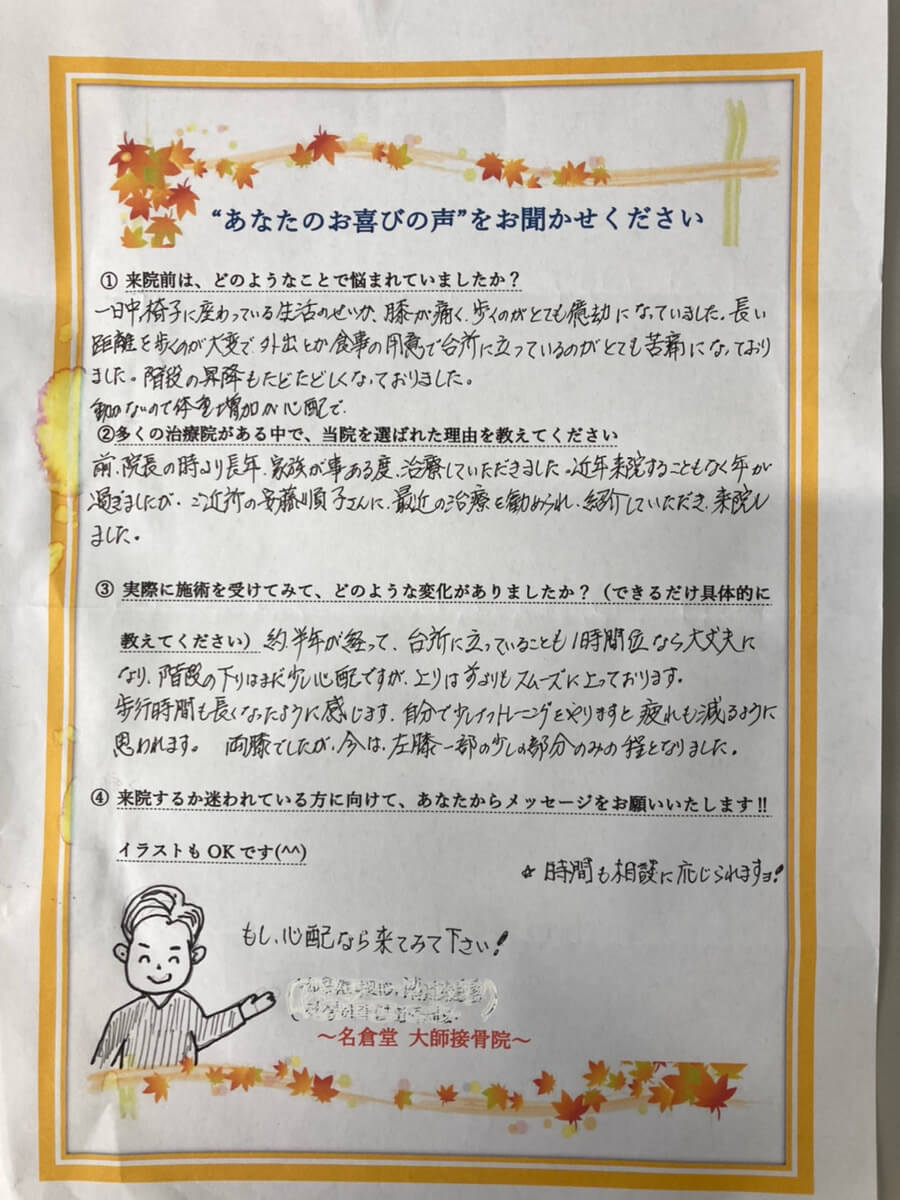 “あなたのお喜びの声”をお聞かせください
① 来院前は、どのようなことで悩まれていましたか？
一日中、椅子に座わっている生活のせいか、膝が痛く、歩くのがとても億劫になっていました。長い
距離を歩くのが大変で、外出とか食事の用意で台所に立っているのがとても苦痛になっており
ました。階段の昇降もたどたどしくなっておりました。
動かないので体重増加が心配で、
②多くの治療院がある中で、当院を選ばれた理由を教えてください
前、院長の時より長年、家族が事ある度、治療していただきました。近年来院することもなく年が
過ぎましたが、ご近所の安藤順子さんに、最近の治療を勧められ、紹介していただき、来院し
ました。
③ 実際に施術を受けてみて、どのような変化がありましたか？（できるだけ具体的に
教えてください）約、半年が経って、台所に立っていることも1時間位なら大丈夫に
なり、階段の下りはまだ少し心配ですが、上りは前よりもスムーズに上っております。
歩行時間も長くなったように感じます、自分で少しトレーニングをやりますと疲れも減るように
思われます。 両膝でしたが、今は、左膝一部の少しの部分のみの程となりました。
④ 来院するか迷われている方に向けて、あなたからメッセージをお願いいたします!!
イラストもOKです(^^)
☆ 時間も相談に応じられますョ!
もし、心配なら来てみて下さい!
～名倉堂 大師接骨院～